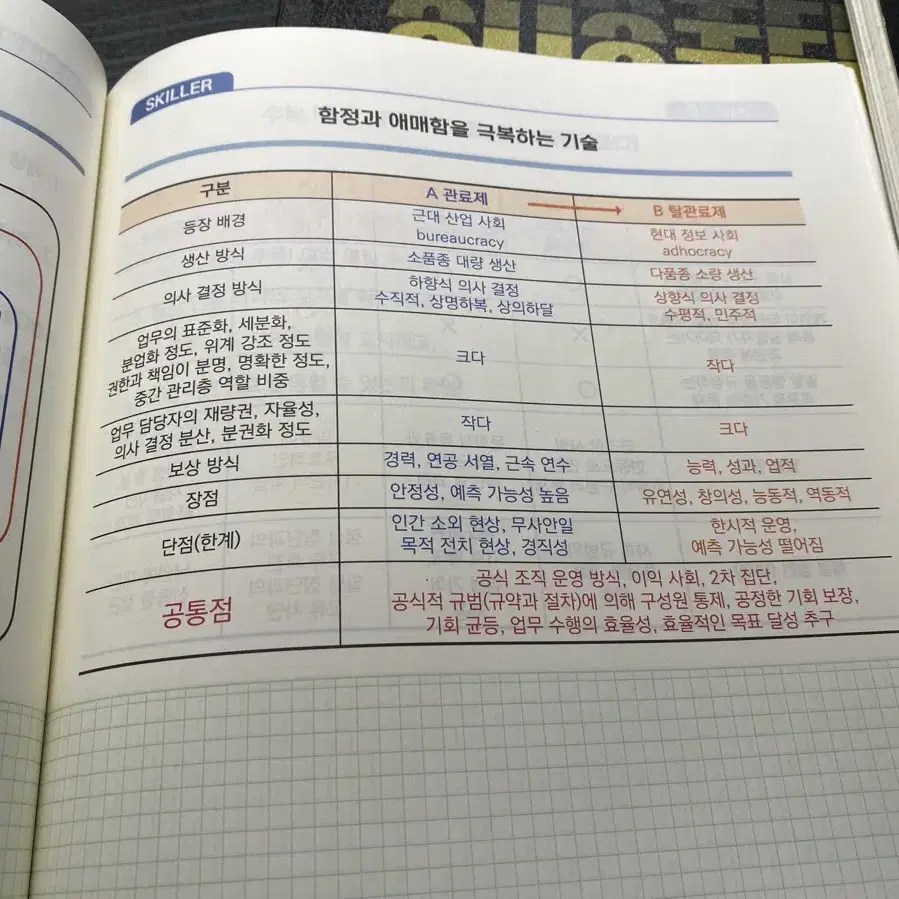 SKILLER
함정과 애매함을 극복하는 기술
구분
A 관료제
B 탈관료제
등장 배경
근대 산업 사회
bureaucracy
현대 정보 사회
adhocracy
생산 방식
소품종 대량 생산
다품종 소량 생산
의사 결정 방식
하향식 의사 결정
수직적, 상명하복, 상의하달
상향식 의사 결정
수평적, 민주적
업무의 표준화, 세분화,
분업화 정도, 위계 강조 정도
권한과 책임이 분명, 명확한 정도,
중간 관리층 역할 비중
크다
작다
업무 담당자의 재량권, 자율성,
의사 결정 분산, 분권화 정도
작다
크다
보상 방식
경력, 연공 서열, 근속 연수
능력, 성과, 업적
장점
안정성, 예측 가능성 높음
유연성, 창의성, 능동적, 역동적
단점(한계)
인간 소외 현상, 무사안일
목적 전치 현상, 경직성
한시적 운영,
예측 가능성 떨어짐
공통점
공식 조직 운영 방식, 이익 사회, 2차 집단,
공식적 규범(규약과 절차)에 의해 구성원 통제, 공정한 기회 보장,
기회 균등, 업무 수행의 효율성, 효율적인 목표 달성 추구